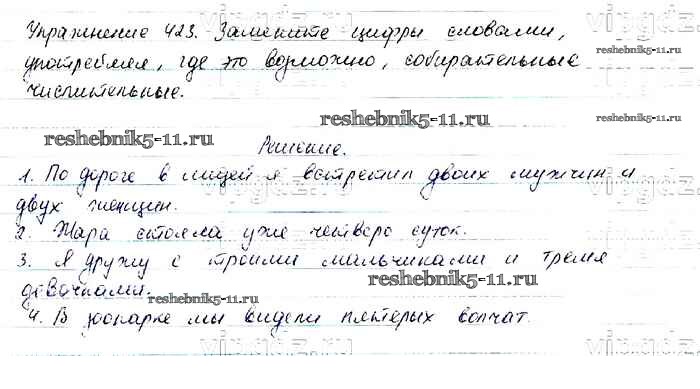 Упражнение 423. Замените цифры словами,
употребляя, где это возможно, собирательные
числительные.
reshebnik5-11.ru
reshebnik5-11.ru
reshebnik5-11.ru
Решение.
1. По дороге в лицей я встретил двоих мужчин и
двух женщин.
2. Жара стояла уже четверо суток.
3. Я дружу с троими мальчиками и тремя
reshebnik5-11.ru
девочками.
reshebnik5-11.ru
4. В зоопарке мы видели пятерых волчат.